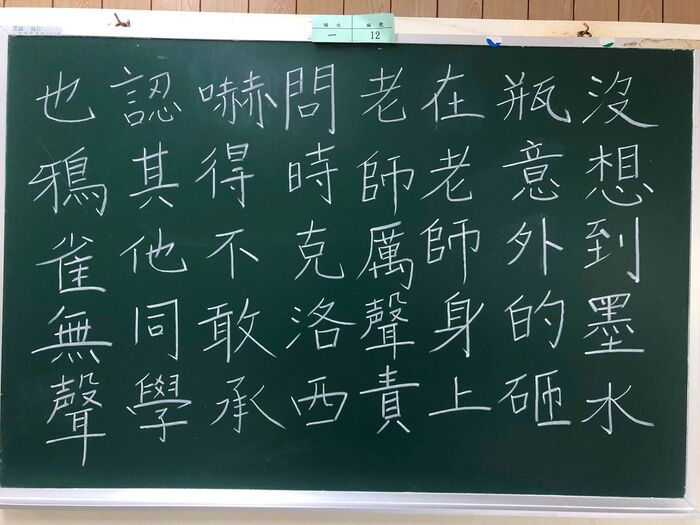 場次 編號
一 12
沒想到墨水
瓶意外的砸
在老師身上
老師厲聲責
問時克洛西
嚇得不敢承
認其他同學
也鴉雀無聲